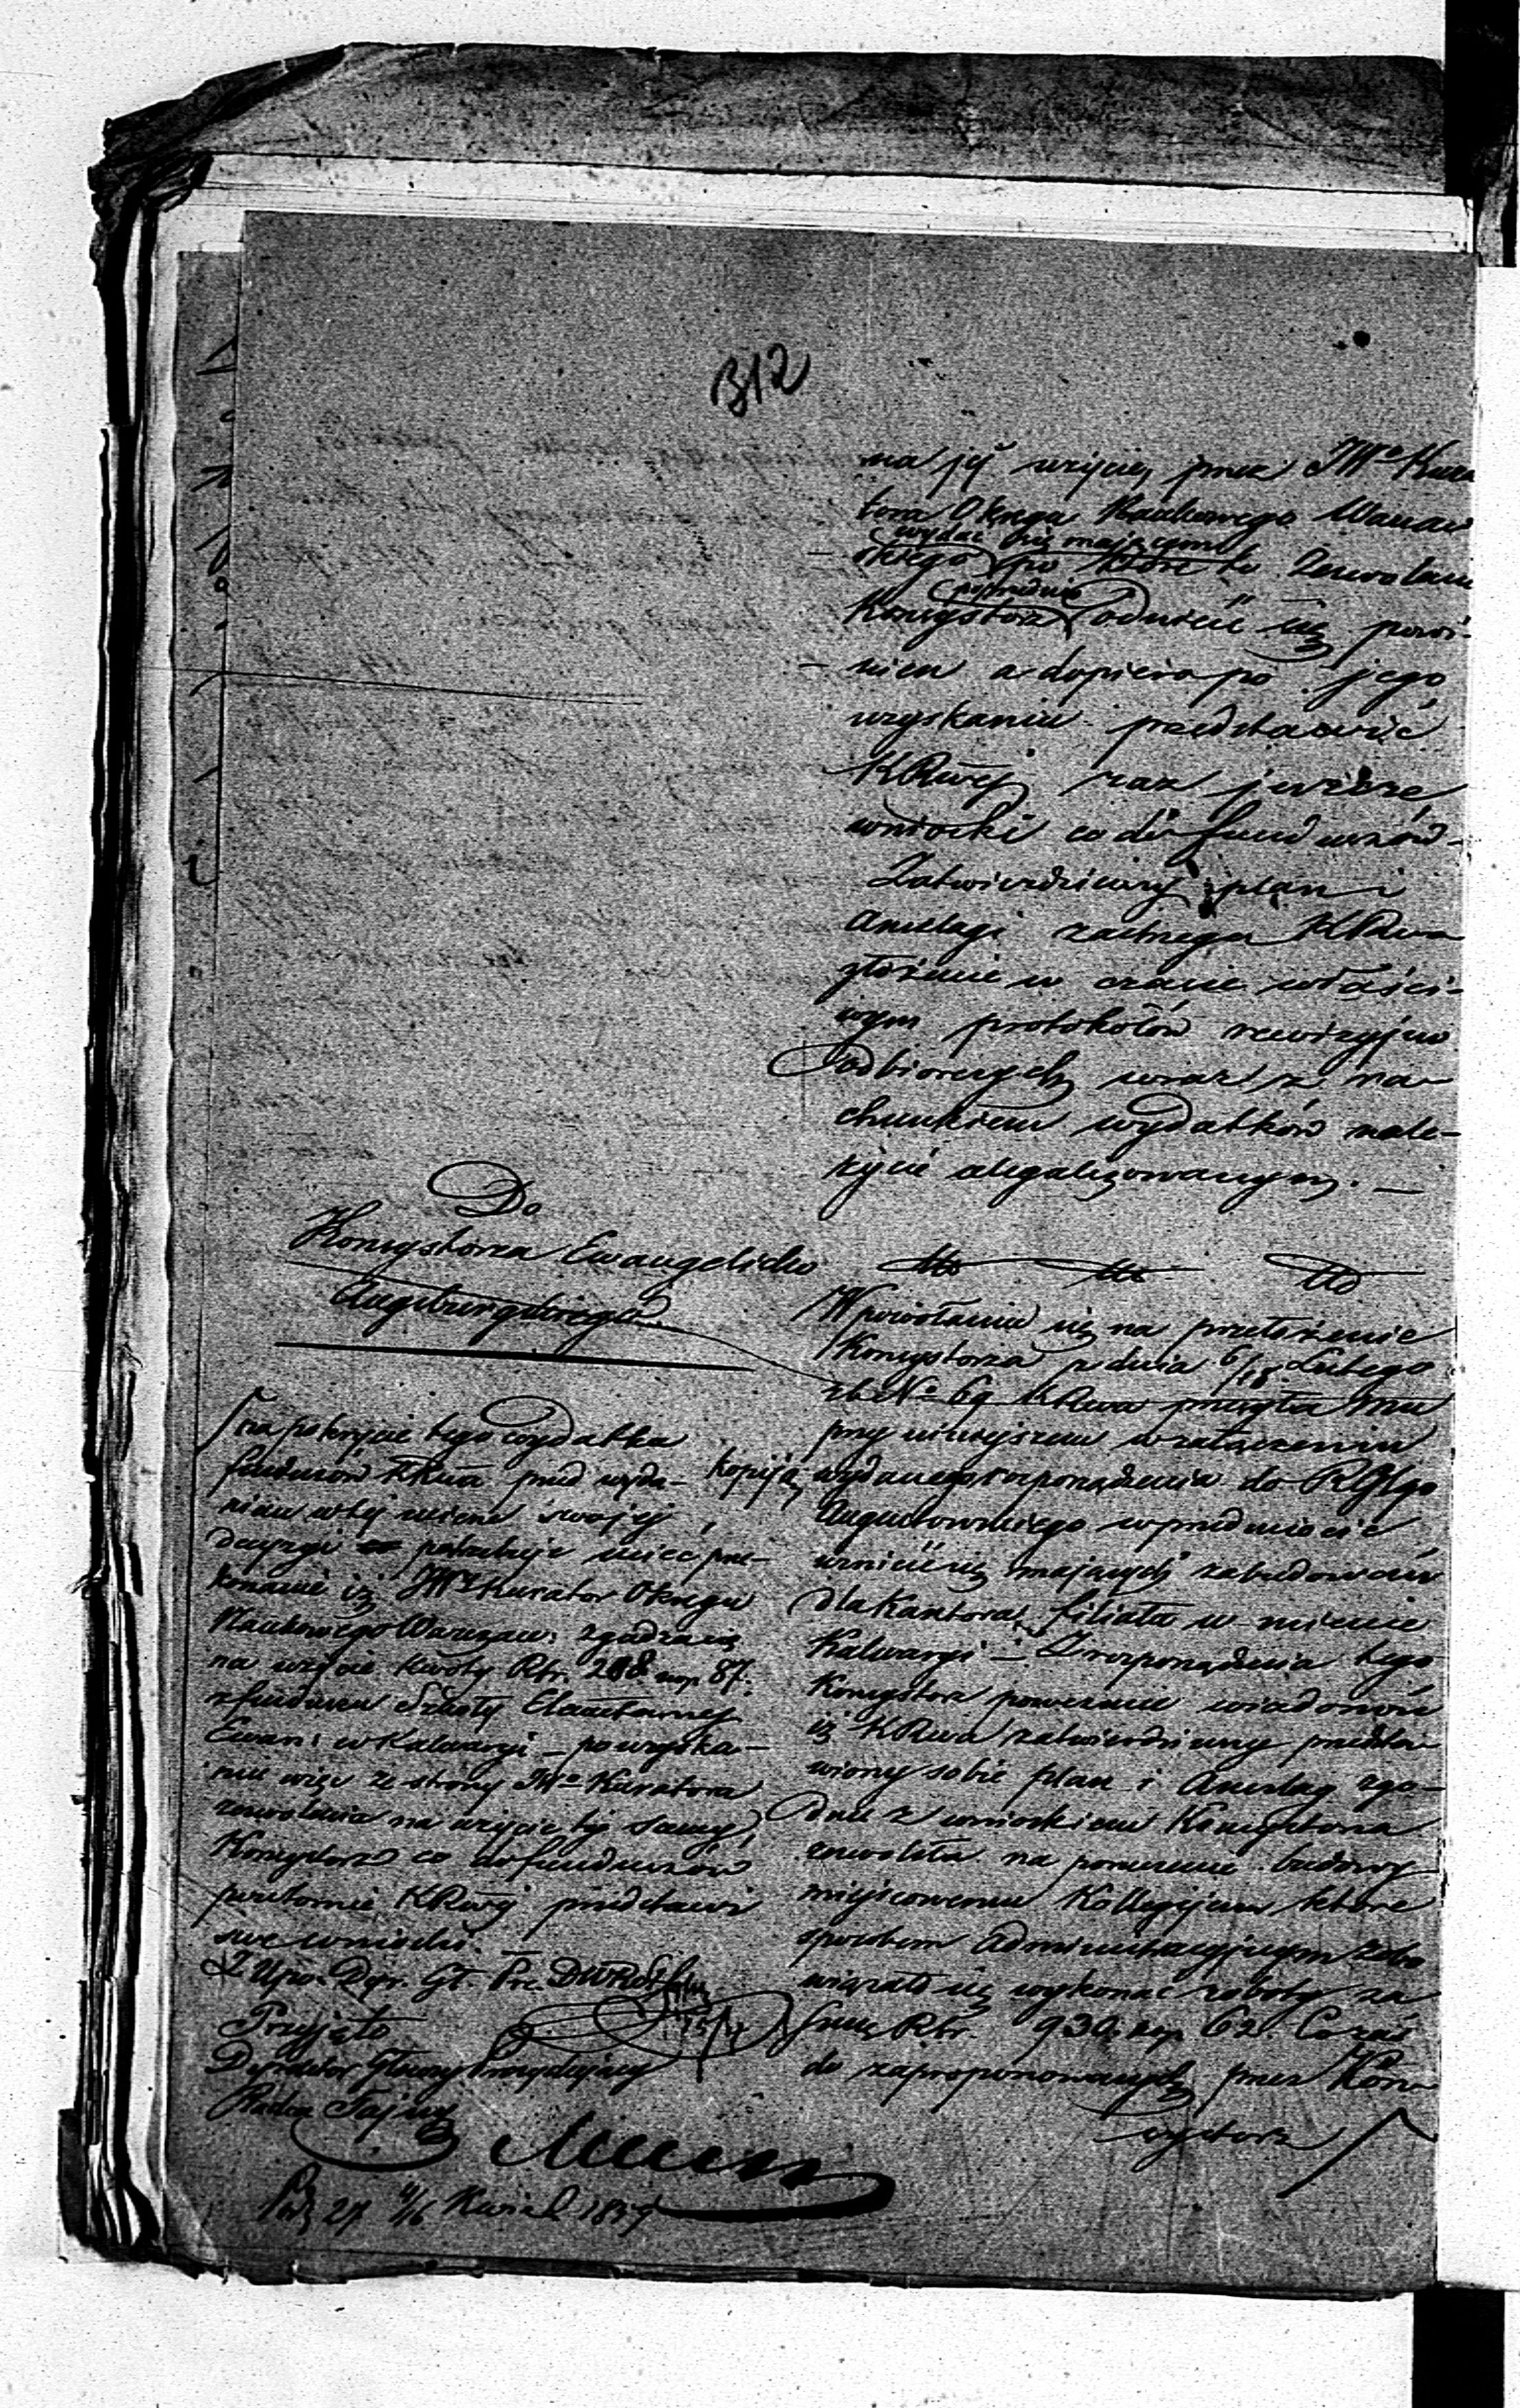 312
na jej użycie, przez JWo Kura
tora Okręgu Naukowego Warsza
wydać się mającem
skiego po które to Zezwolenie
poprzednio
Konsystorz odnieść się powi-
nien a dopiero po jego
uzyskaniu przedstawić
KRwej raz jeszcze
wnioski co do funduszów -
Zatwierdzony plan i
Anszlagi zastrzega KRwa
złożenie w czasie właści-
wym protokołów rewizyjno
odbiorczych wraz z ra-
chunkiem wydatków nale-
życie alegalizowanym. —
Do
Konsystorza Ewangelicko
Augsburgskiego
W powołaniu się na przełożenie
Konsystorza z dnia 6/18 Lutego
rb No 69 KRwa przesyła mu
przy niniejszem w załączeniu
kopiją wydanego rozporządzenia do RGlgo
Augustowskiego w przedmiocie
wznieść się mających zabudowań
dla Kantora filiału w mieście
Kalwaryi — Z rozporządzenia tego
Konsystorz poweźmie wiadomość
iż KRwa zatwierdziwszy przedsta
wiony sobie plan i Anszlag zgo-
dnie z wnioskiem Konsystorza
zezwoliła na poruczenie budowy
miejscowemu Kollegijum które
sposobem Administracyjnym zobo
wiązało się wykonać roboty za
Summę Rbr. 930 kop 62. Co zaś
do zaproponowanych przez Kon-
systorz
na pokrycie tego wydatku
funduszów KRwa przed wyda-
niem w tej mierze swojej
decyzyi potrzebuje mieć prze-
konanie iż JWy Kurator Okręgu
Naukowego Warszaw: zgadza się
na użycie kwoty Rbr. 208 kop 87.
z funduszu Szkoły Elementarnej
Ewan: w Kalwaryi — po uzyska-
niu więc ze strony JWo Kuratora
zezwolenia na użycie tej Sumy,
Konsystorz co do funduszów
powtórnie KRwej przedstawi
swe wnioski.
Z Upo. Dyr. Gł. Prez.
Przyjęto
Dyrektor Główny Prezydujący
Radca Tajny
27 4/16 Kwiet 1859